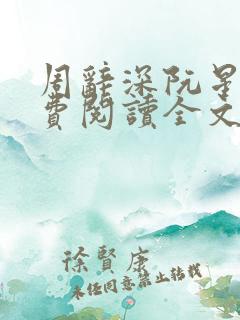 周辭深阮星
費閱讀全文
徐賢康
未经同意禁止转载